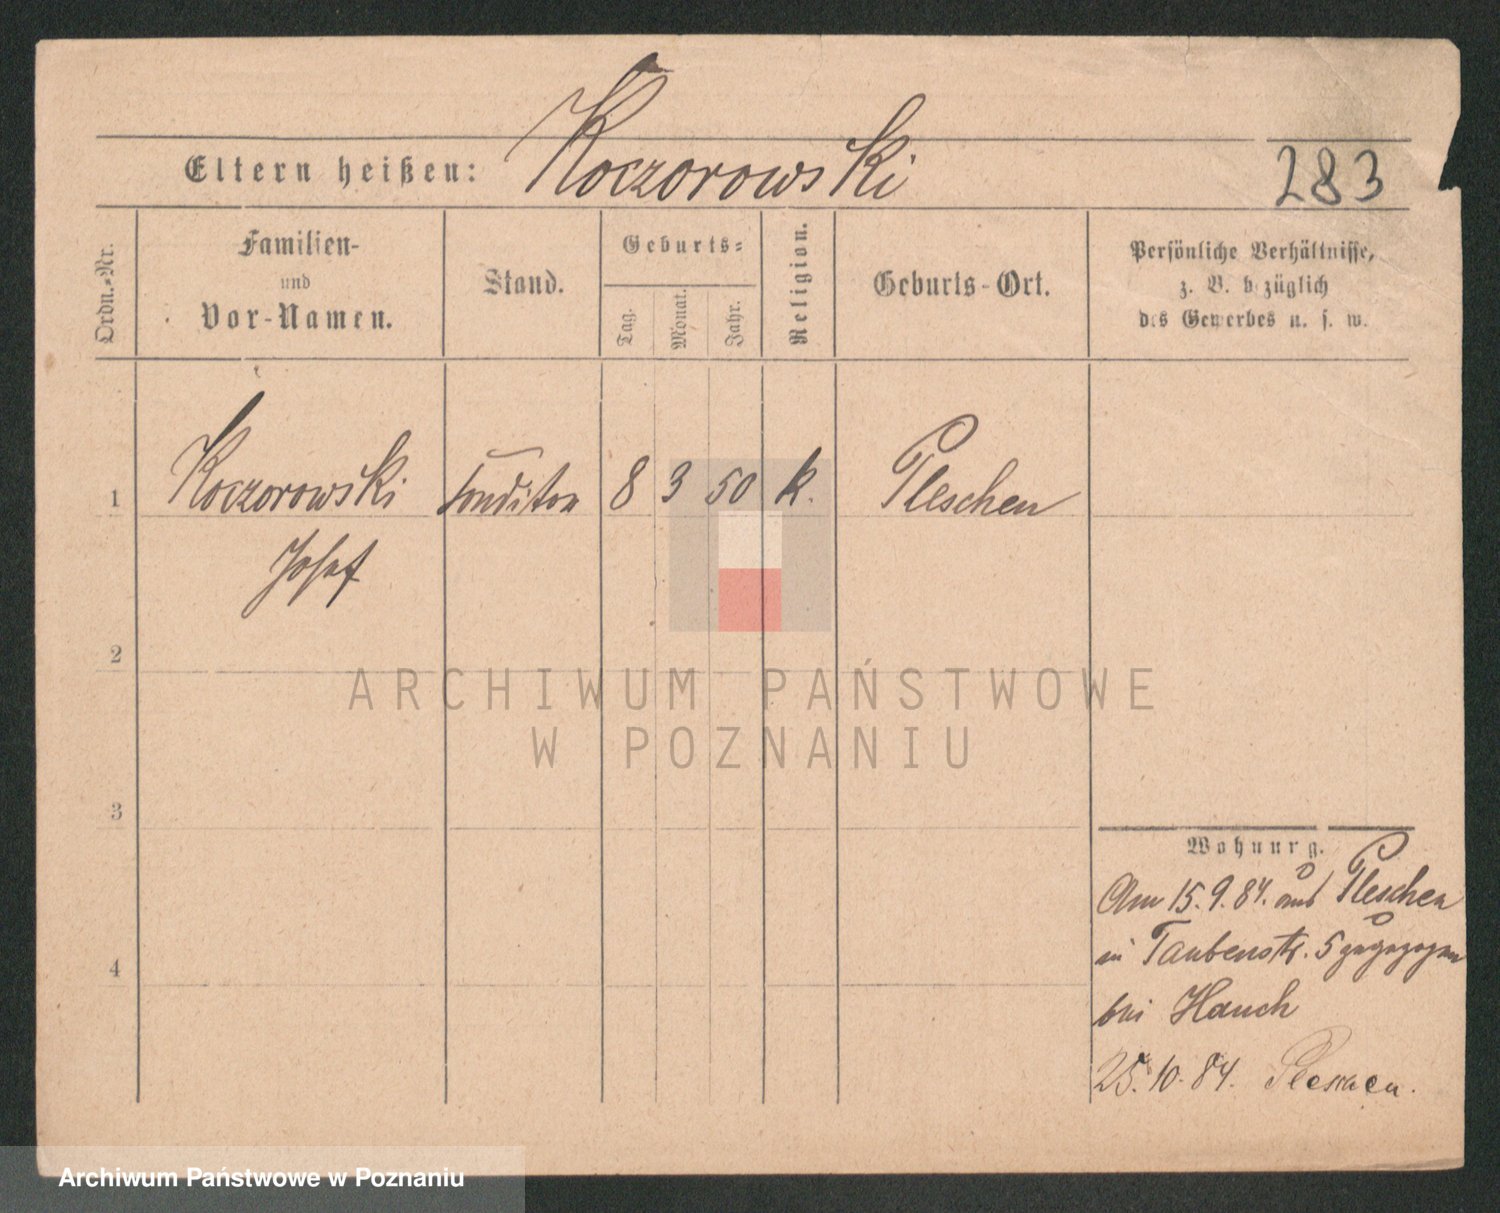 Koczorowski
Eltern heißen:
283
Ordn.-Nr.
Familien-
und
Vor-Namen.
Stand.
Geburts-
Tag.
Monat.
Jahr.
Religion.
Geburts-Ort.
Persönliche Verhältnisse,
z. B. bezüglich
des Gewerbes u. s. w.
1 Koczorowski Conditor 8 3 50 k. Pleschen
Josef
2
3
4
Wohnung.
Am 15.9.84. aus Pleschen
in Taubenstr. 5 zugezogen
bei Hauch
25.10.84. Pleschen.
ARCHIWUM PAŃSTWOWE
W POZNANIU
Archiwum Państwowe w Poznaniu